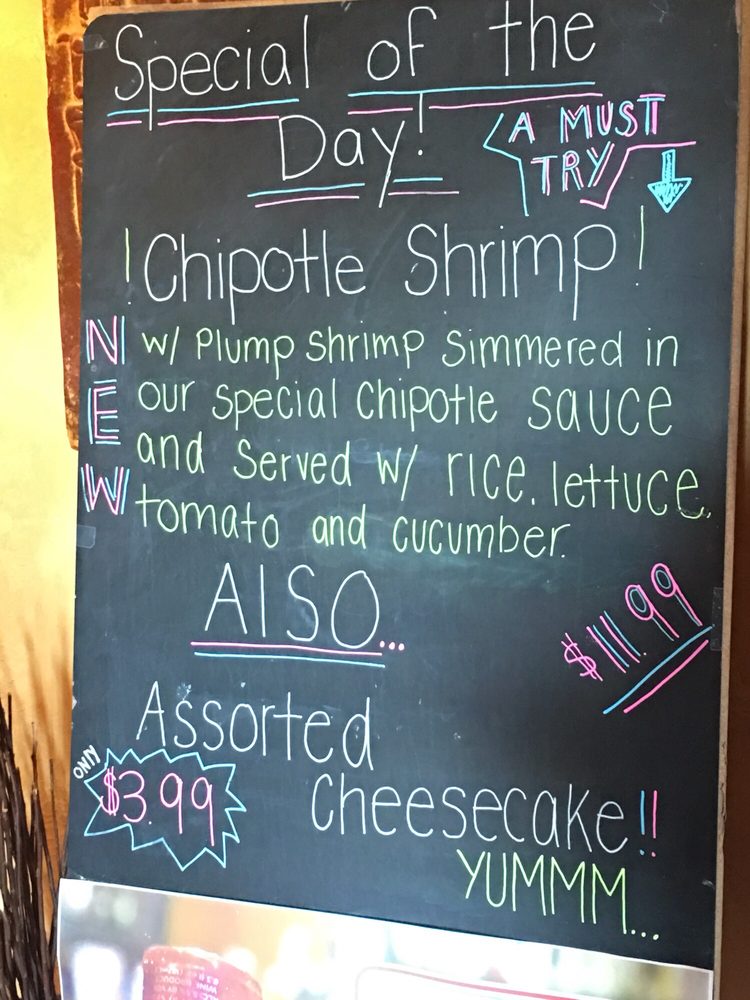 Special of the
Day!
A MUST
TRY
! Chipotle Shrimp!
NEW
w/ Plump shrimp simmered in
our special chipotle sauce
and served w/ rice, lettuce,
tomato and cucumber.
$11.99
AlSO...
Assorted
Cheesecake!!
ONLY
$3.99
YUMMM...